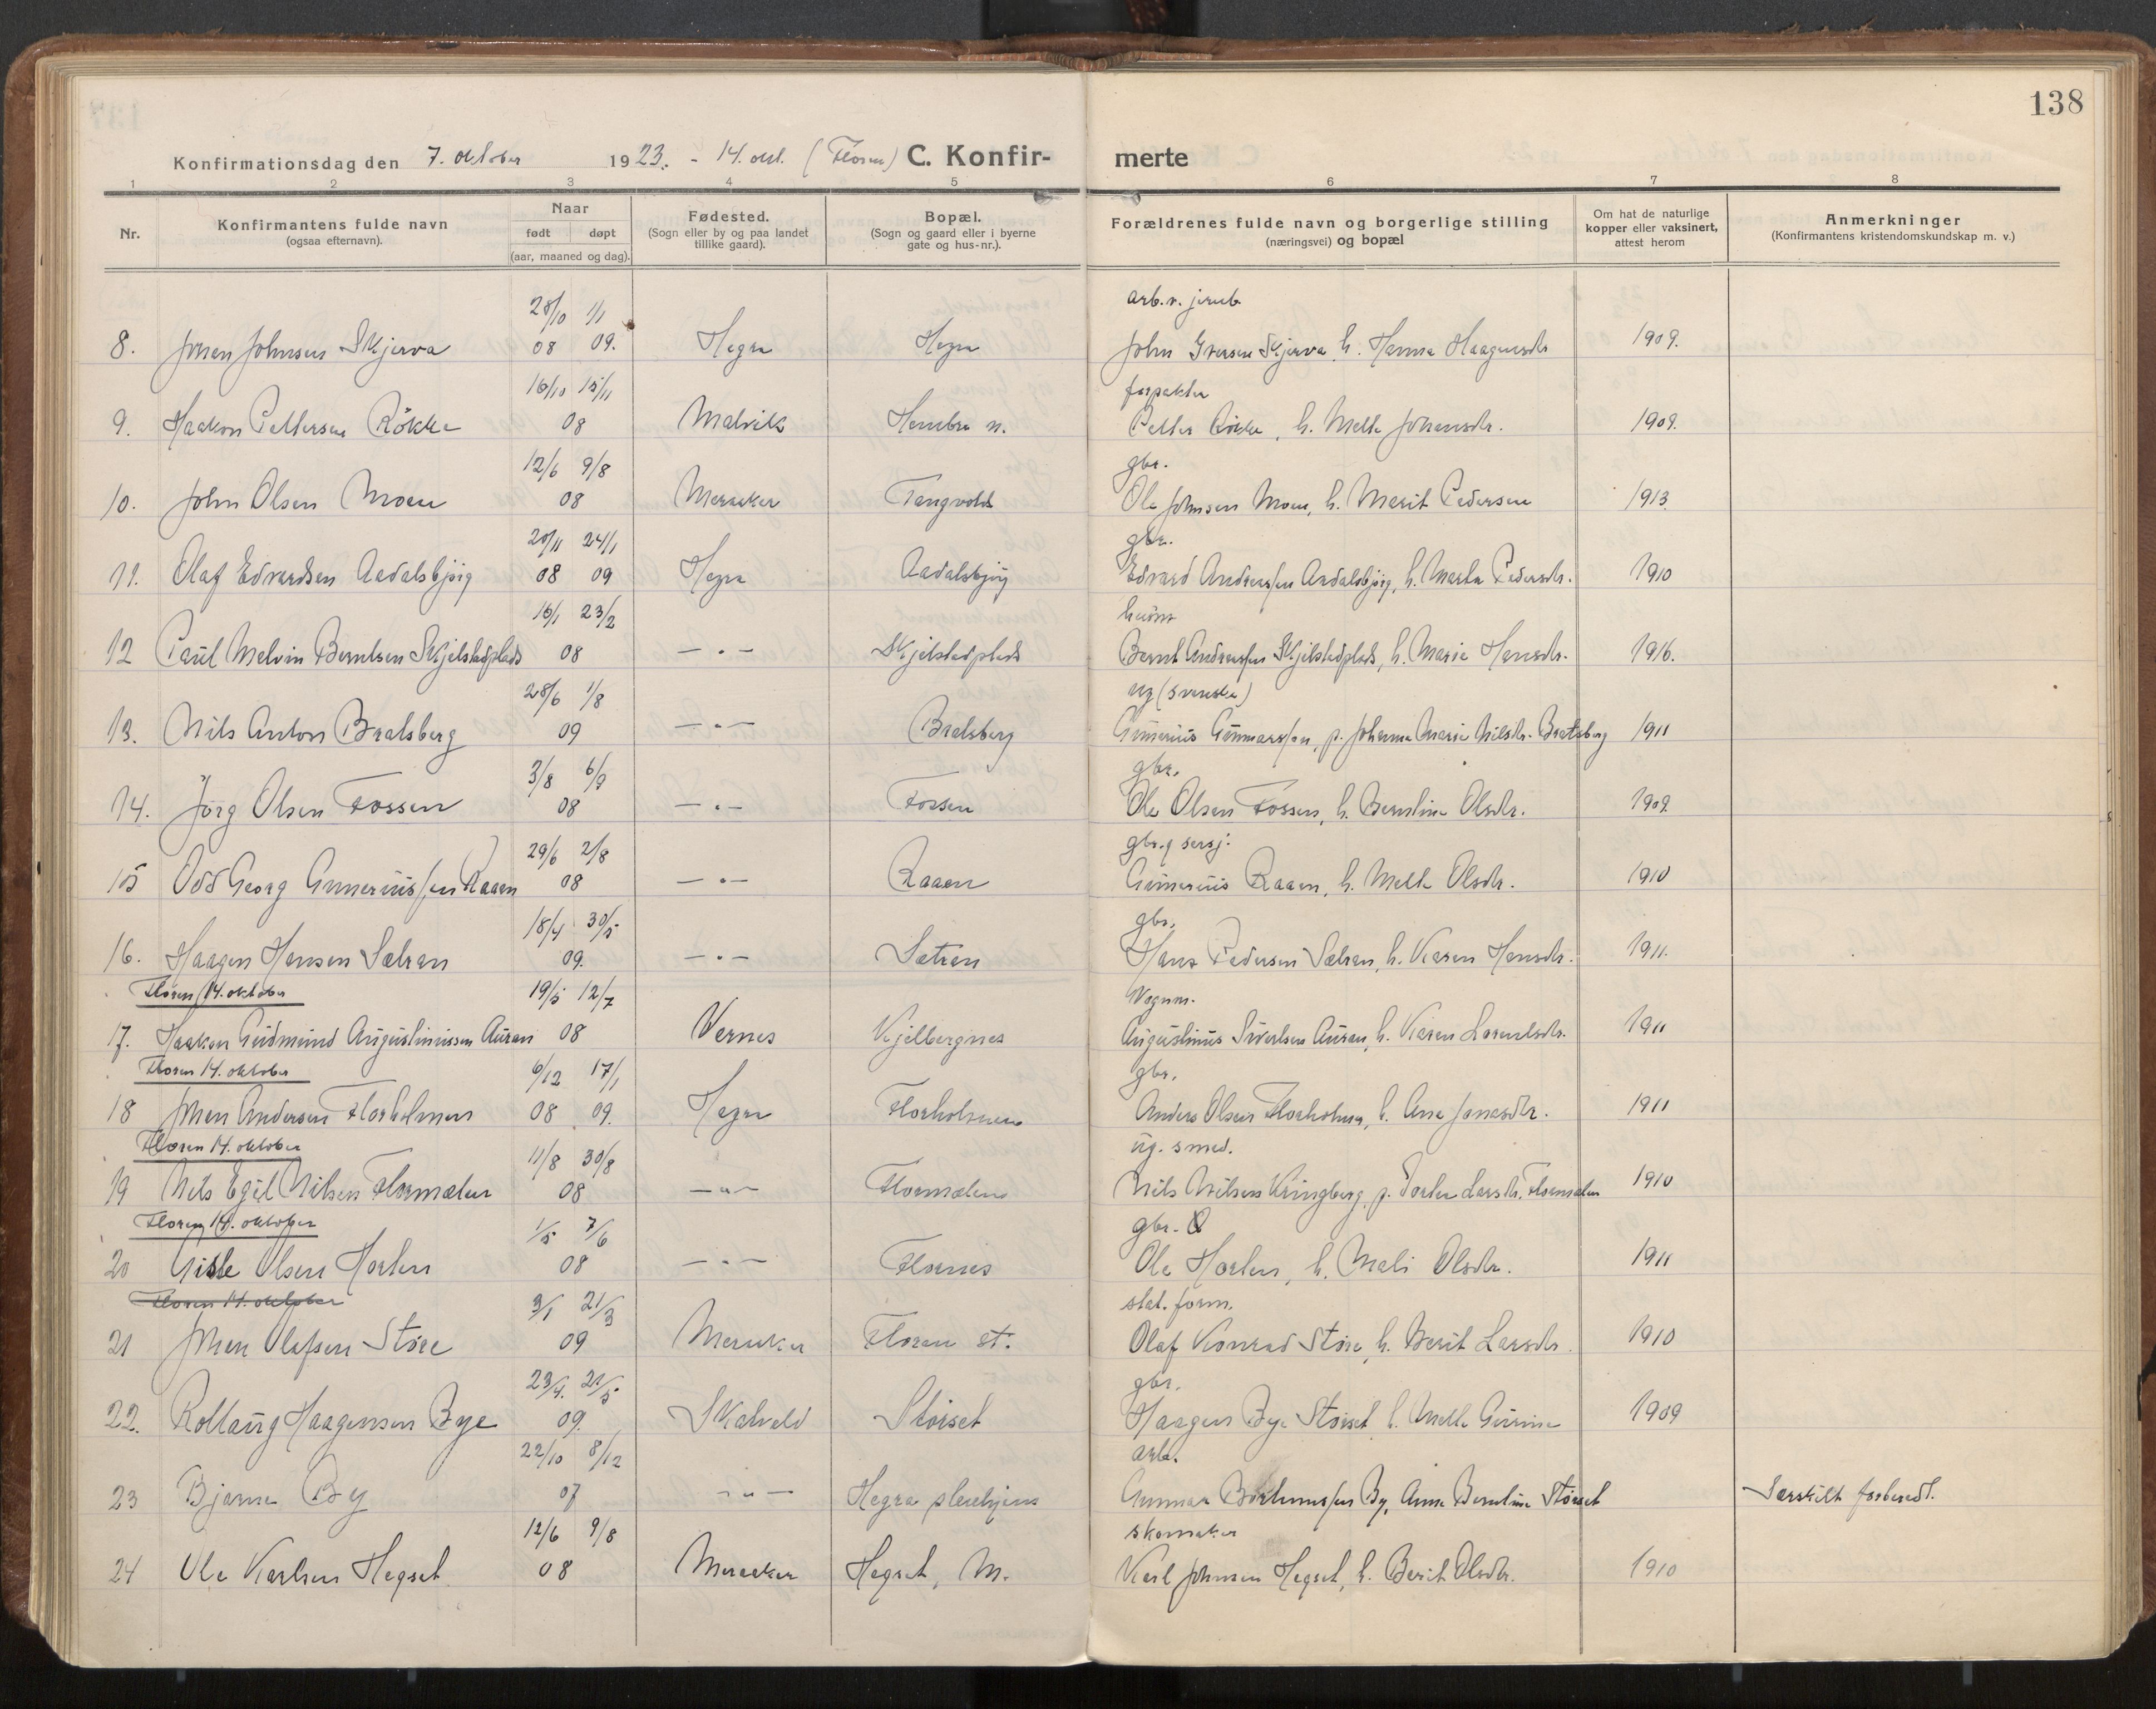 138
Konfirmationsdag den 7. oktober 1923. - 14. okt. (Floren) C. Konfir- merte
1 2 3 4 5 6 7 8
Nr.
Konfirmantens fulde navn
(ogsaa efternavn).
Naar
født døpt
(aar, maaned og dag).
Fødested.
(Sogn eller by og paa landet
tillike gaard).
Bopæl.
(Sogn og gaard eller i byerne
gate og hus-nr.).
Forældrenes fulde navn og borgerlige stilling
(næringsvei) og bopæl
Om hat de naturlige
kopper eller vaksinert,
attest herom
Anmerkninger
(Konfirmantens kristendomskundskap m. v.)
28/10 1/1 arb. v. jernb.
8. Johan Johnsen Skjerva 08 09. Hegra Hegra John Iversen Skjerva, h. Hanna Haagensdtr 1909.
16/10 15/11 forpakter
9. Haakon Pettersen Røkke 08 Malvik Hembre n. Petter Røkke, h. Mette Johansdtr. 1909.
12/6 9/8 gbr.
10. John Olsen Moen 08 Meraker Tangvold Ole Johnsen Moen, h. Marit Pedersen 1913.
20/11 24/1 gbr.
11. Olaf Edvardsen Aadalsbjørg 08 09 Hegra Aadalsbjørg Edvard Anderssen Aadalsbjørg, h. Marta Pedersdtr. 1910
16/1 23/2 husm
12 Paul Melvin Berntsen Skjelstadplads 08 — " — Skjelstadplads Bernt Andreassen Skjelstadplads, h. Marie Hansdtr. 1916.
28/6 1/8 ug (svenske)
13. Nils Anton Bratsberg 09 — " — Bratsberg Gunerius Gunnarssen, p. Johanna Marie Nilsdtr. Bratsberg 1911
3/8 6/9 gbr.
14. Jørg Olsen Fossen 08 — " — Fossen Ole Olsen Fossen, h. Berntine Olsdtr. 1909.
29/6 2/8 gbr. & sersj.
15 Odd Georg Guneriussen Raaen 08 — " — Raaen Gunerius Raaen, h. Mette Olsdtr. 1910
18/4 30/5 gbr.
16. Haagen Hansen Sætran 09. — " — Sætran Hans Pedersen Sætran, h. Karen Hansdtr. 1911.
Floren 14. oktober 19/5 12/7 Vognm.
17. Haakon Gudmund Augustinussen Auran 08 Værnes Kjelbergnes Augustinus Sivertsen Auran, h. Karen Lorentsdtr. 1911
Floren 14. oktober 6/12 17/1 gbr.
18 Johan Andersen Florholmen 08 09. Hegra Florholmen Anders Olsen Florholmen, h. Ane Jonasdtr. 1911
Floren 14. oktober 11/8 30/8 ug. smed.
19 Nils Egil Nilsen Flormælen 08 — " — Flormælen Nils Nilsen Kringberg, p. Larsdtr. Flormælen 1910
Floren 14. oktober 1/5 7/6 gbr.
20 Gisle Olsen Horten 08 — " — Flornes Ole Horten, h. Mali Olsdtr. 1911
Floren 14. oktober 3/1 21/3 stat. form.
21 Johan Olafsen Støre 09 Meraker Floren st. Olaf Konrad Støre, h. Berit Larsdtr. 1910
23/4. 21/5 gbr.
22. Rollaug Haagensen Bye 09. Skatval Størset Haagen Bye Størset, h. Mette Gurine 1909
22/10 8/12 arb.
23 Bjarne By 07 — " — Hegra pleiehjem Gunnar By, Anna Berntine Størset Særskilt forberedt.
12/6 9/8 skomaker
24 Ole Karlsen Hegset 08 Meraker Hegset, M. Karl Johnsen Hegset, h. Berit Olsdtr. 1910